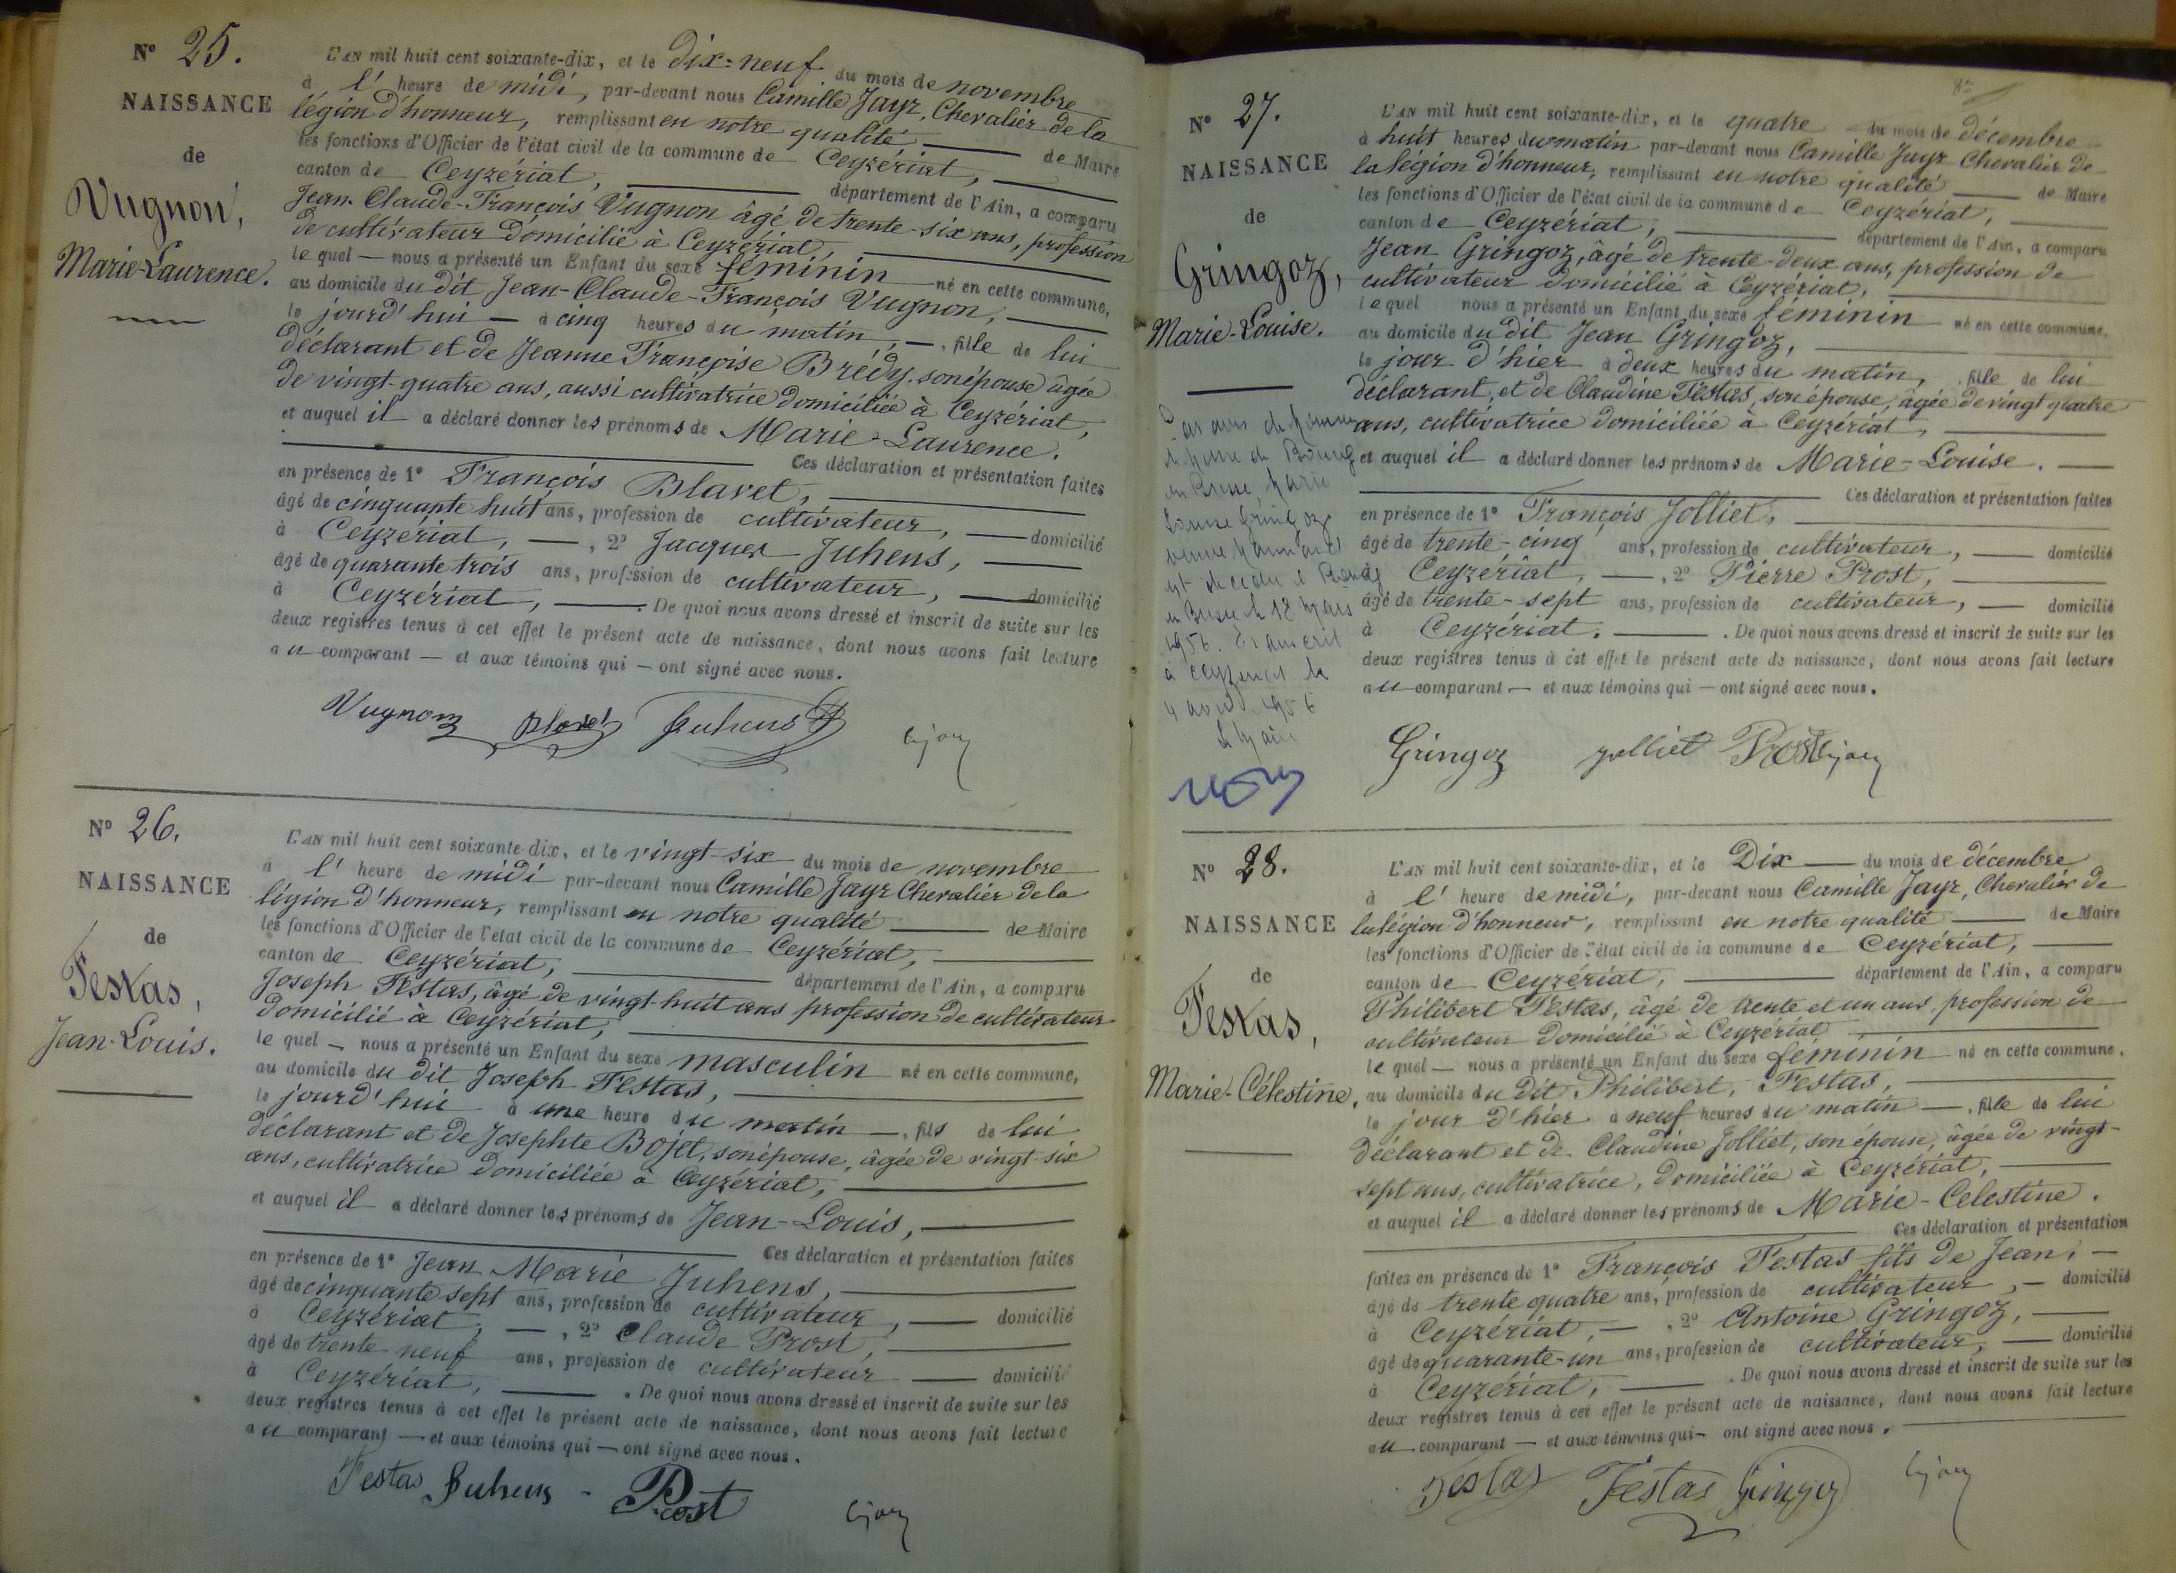 N° 25.
NAISSANCE
de
Vugnon,
Marie-Laurence.
L'AN mil huit cent soixante-dix, et le dix-neuf du mois de novembre
à l' heure de midi, par-devant nous Camille Jayr, Chevalier de la
légion d'honneur, remplissant en notre qualité de Maire
les fonctions d'Officier de l'état civil de la commune de Ceyzériat,
canton de Ceyzériat, département de l'Ain, a comparu
Jean-Claude-François Vugnon âgé de trente-six ans, profession
de cultivateur domicilié à Ceyzériat,
le quel — nous a présenté un Enfant du sexe féminin né en cette commune,
au domicile du dit Jean-Claude-François Vugnon,
le jourd'hui — à cinq heures du matin, — , fille de lui
déclarant et de Jeanne Françoise Brédy, son épouse âgée
de vingt-quatre ans, aussi cultivatrice domiciliée à Ceyzériat,
et auquel il a déclaré donner les prénoms de Marie-Laurence.
Ces déclaration et présentation faites
en présence de 1° François Blavet,
âgé de cinquante huit ans, profession de cultivateur, — domicilié
à Ceyzériat, — , 2° Jacques Juhens,
âgé de quarante trois ans, profession de cultivateur, — domicilié
à Ceyzériat, — . De quoi nous avons dressé et inscrit de suite sur les
deux registres tenus à cet effet le présent acte de naissance, dont nous avons fait lecture
au comparant — et aux témoins qui — ont signé avec nous.
Vugnon Blavet Juhens
N° 26.
NAISSANCE
de
Festas,
Jean-Louis.
L'AN mil huit cent soixante-dix, et le vingt-six du mois de novembre
à l' heure de midi par-devant nous Camille Jayr Chevalier de la
légion d'honneur, remplissant en notre qualité de Maire
les fonctions d'Officier de l'état civil de la commune de Ceyzériat,
canton de Ceyzériat, département de l'Ain, a comparu
Joseph Festas, âgé de vingt-huit ans profession de cultivateur
domicilié à Ceyzériat,
le quel — nous a présenté un Enfant du sexe masculin né en cette commune,
au domicile du dit Joseph Festas,
le jourd'hui à une heure du matin — , fils de lui
déclarant et de Josephte Bojet, son épouse, âgée de vingt-six
ans, cultivatrice domiciliée à Ceyzériat,
et auquel il a déclaré donner les prénoms de Jean-Louis,
Ces déclaration et présentation faites
en présence de 1° Jean Marie Juhens,
âgé de cinquante sept ans, profession de cultivateur, — domicilié
à Ceyzériat, — , 2° Claude Prost,
âgé de trente neuf ans, profession de cultivateur — domicilié
à Ceyzériat, — . De quoi nous avons dressé et inscrit de suite sur les
deux registres tenus à cet effet le présent acte de naissance, dont nous avons fait lecture
au comparant — et aux témoins qui — ont signé avec nous.
Festas Juhens Prost
N° 27.
NAISSANCE
de
Gringoz,
Marie-Louise.
de Bourg
en Bresse, Marie
Louise Gringoz
veuve
est décédée à Bourg
en Bresse le 12 Mars
1956. Transcrit
à Ceyzériat le
4 avril 1956
L'AN mil huit cent soixante-dix, et le quatre du mois de décembre
à huit heures du matin par-devant nous Camille Jayr Chevalier de
la légion d'honneur, remplissant en notre qualité de Maire
les fonctions d'Officier de l'état civil de la commune de Ceyzériat,
canton de Ceyzériat, département de l'Ain, a comparu
Jean Gringoz, âgé de trente-deux ans, profession de
cultivateur domicilié à Ceyzériat,
le quel nous a présenté un Enfant du sexe féminin né en cette commune,
au domicile du dit Jean Gringoz,
le jour d'hier à deux heures du matin, fille de lui
déclarant, et de Claudine Festas, son épouse, âgée de vingt quatre
ans, cultivatrice domiciliée à Ceyzériat,
et auquel il a déclaré donner les prénoms de Marie-Louise. —
Ces déclaration et présentation faites
en présence de 1° François Jolliet,
âgé de trente-cinq ans, profession de cultivateur, — domicilié
à Ceyzériat, — , 2° Pierre Prost,
âgé de trente-sept ans, profession de cultivateur, — domicilié
à Ceyzériat. — . De quoi nous avons dressé et inscrit de suite sur les
deux registres tenus à cet effet le présent acte de naissance, dont nous avons fait lecture
au comparant — et aux témoins qui — ont signé avec nous.
Gringoz Jolliet Prost
N° 28.
NAISSANCE
de
Festas,
Marie-Célestine.
L'AN mil huit cent soixante-dix, et le Dix — du mois de décembre
à l' heure de midi, par-devant nous Camille Jayr, Chevalier de
la légion d'honneur, remplissant en notre qualité — de Maire
les fonctions d'Officier de l'état civil de la commune de Ceyzériat,
canton de Ceyzériat, département de l'Ain, a comparu
Philibert Festas, âgé de trente et un ans profession de
cultivateur domicilié à Ceyzériat
le quel — nous a présenté un Enfant du sexe féminin né en cette commune,
au domicile du dit Philibert, Festas,
le jour d'hier à neuf heures du matin — , fille de lui
déclarant et de Claudine Jolliet, son épouse, âgée de vingt-
sept ans, cultivatrice, domiciliée à Ceyzériat,
et auquel il a déclaré donner les prénoms de Marie-Celestine.
Ces déclaration et présentation
faites en présence de 1° François Festas fils de Jean, —
âgé de trente quatre ans, profession de cultivateur, — domicilié
à Ceyzériat, — , 2° Antoine Gringoz,
âgé de quarante-un ans, profession de cultivateur, — domicilié
à Ceyzériat, — . De quoi nous avons dressé et inscrit de suite sur les
deux registres tenus à cet effet le présent acte de naissance, dont nous avons fait lecture
au comparant — et aux témoins qui — ont signé avec nous.
Festas Festas Gringoz